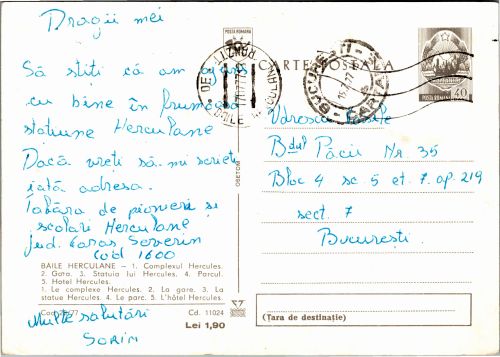 Dragii mei
Să știți că am ajuns
cu bine în frumoasa
stațiune Herculane
Dacă vreți să-mi scrieți
iată adresa.
Tabăra de pionieri și
școlari Herculane
jud. Caraș Severin
Cod 1600
BAILE HERCULANE – 1. Complexul Hercules.
2. Gara. 3. Statuia lui Hercules. 4. Parcul.
5. Hotel Hercules.
1. Le complexe Hercules. 2. La gare. 3. La
statue Hercules. 4. Le parc. 5. L'hôtel Hercules.
Cd. 11024
Lei 1,90
Multe salutări
SORIN
POSTA ROMANA
CARTE POSTALA
BUCURESTI
POSTA ROMANA
40
Vasile
Bdul Păcii Nr 35
Bloc 4 sc 5 et. 7. ap. 219
sect. 7
București.
(Țara de destinație)